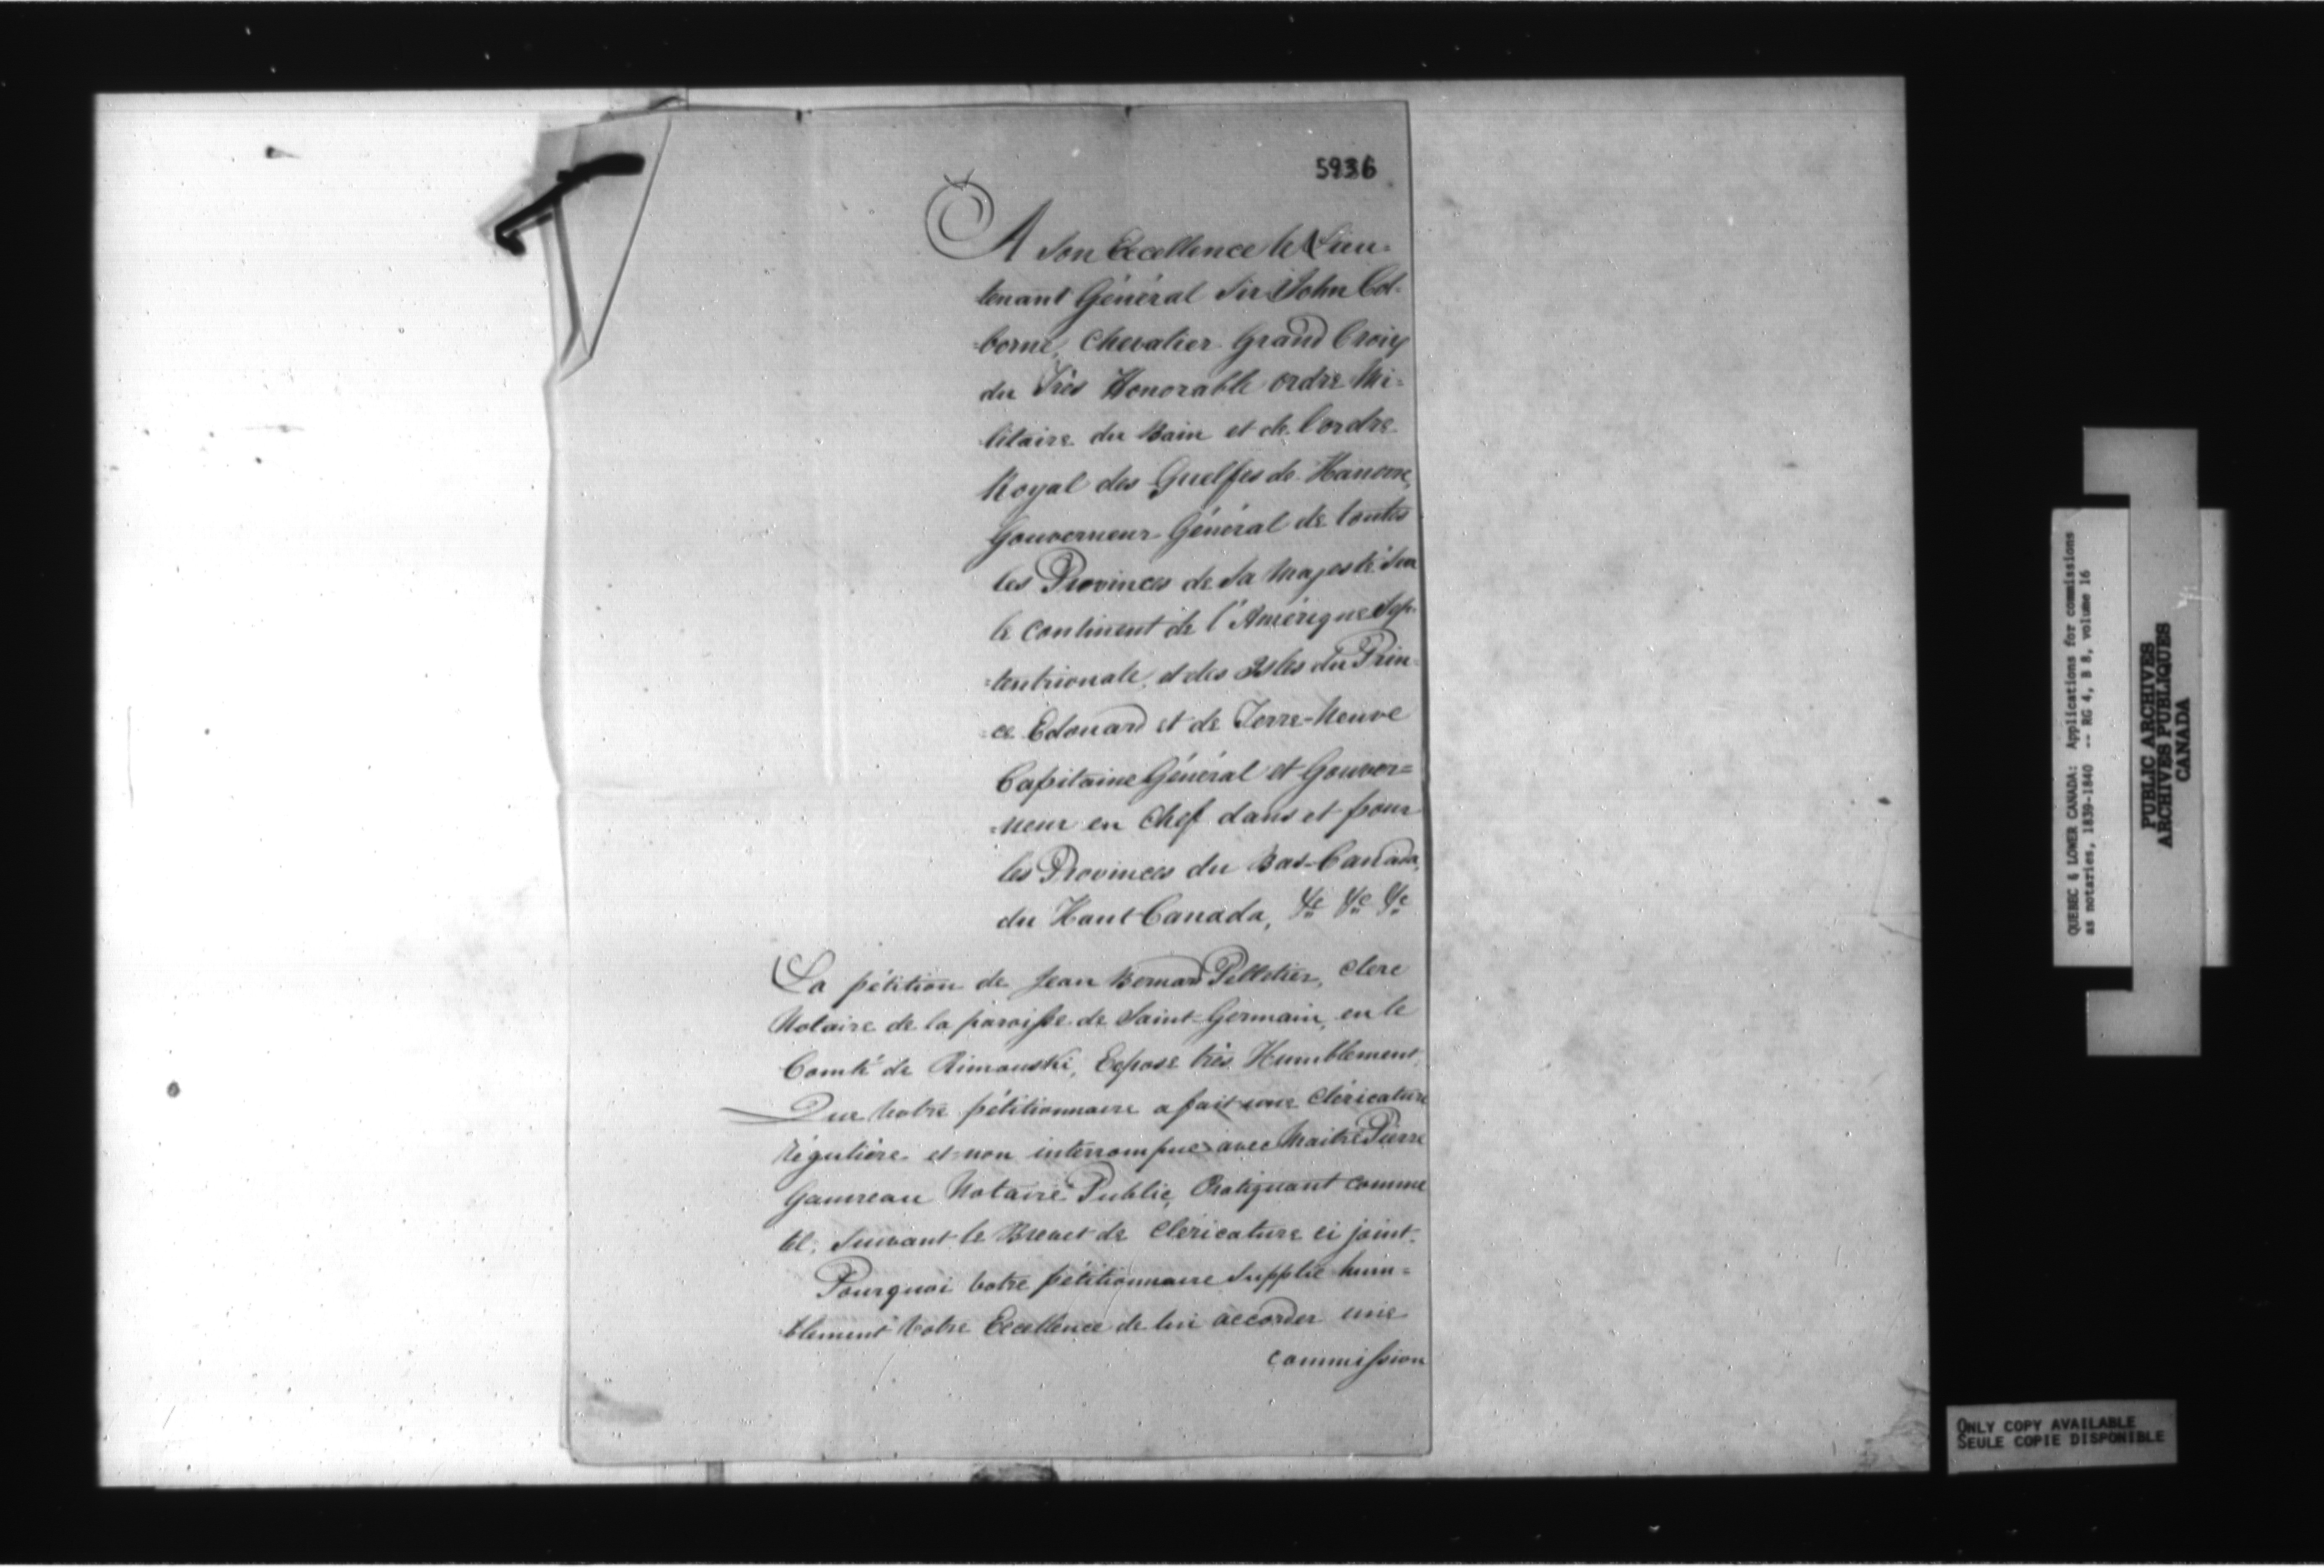 5936
A Son Excellence le Lieu=
tenant Général Sir John Col-
=borne, Chevalier Grand Croix
du Très Honorable ordre Mi=
litaire du Bain et de l'ordre
Royal des Guelfes de Hanovre,
Gouverneur Général de toutes
les Provinces de Sa Majesté sur
le continent de l'Amérique Sep-
=tentrionale, et des Isles du Prin=
=ce Edouard et de Terre-Neuve
Capitaine Général et Gouver=
=neur en Chef dans et pour
les Provinces du Bas-Canada,
du Haut Canada, &c &c &c
La pétition de Jean Bernard Pelletier, clerc
Notaire de la paroisse de Saint-Germain, en le
Comté de Rimouski, Expose très Humblement,
Que Votre pétitionnaire a fait une Cléricature
régulière et non interrompue avec Maitre Pierre
Gauvreau Notaire Public, Pratiquant comme
tel, Suivant le Brevet de Cléricature ci joint.
Pourquoi votre pétitionnaire Supplie hum=
blement Votre Excellence de lui accorder une
commission
QUEBEC & LOWER CANADA: Applications for commissions
as notaries, 1839-1840 -- RG 4, B 8, volume 16
PUBLIC ARCHIVES
ARCHIVES PUBLIQUES
CANADA
ONLY COPY AVAILABLE
SEULE COPIE DISPONIBLE